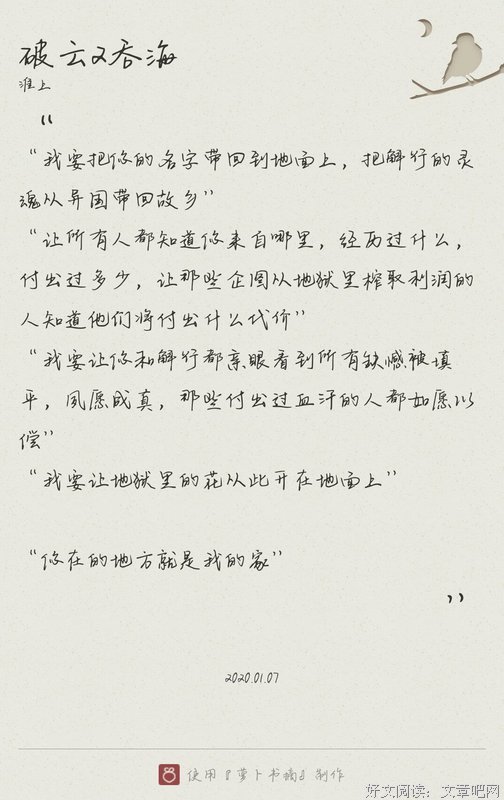 破云2吞海
淮上
“
“我要把你的名字带回到地面上，把解行的灵
魂从异国带回故乡”
“让所有人都知道你来自哪里，经历过什么，
付出过多少，让那些企图从地狱里榨取利润的
人知道他们将付出什么代价”
“我要让你和解行都亲眼看到所有缺憾被填
平，夙愿成真，那些付出过血汗的人都如愿以
偿”
“我要让地狱里的花从此开在地面上”
“你在的地方就是我的家”
”
2020.01.07
使用『萝卜书摘』制作
好文阅读：文章吧网